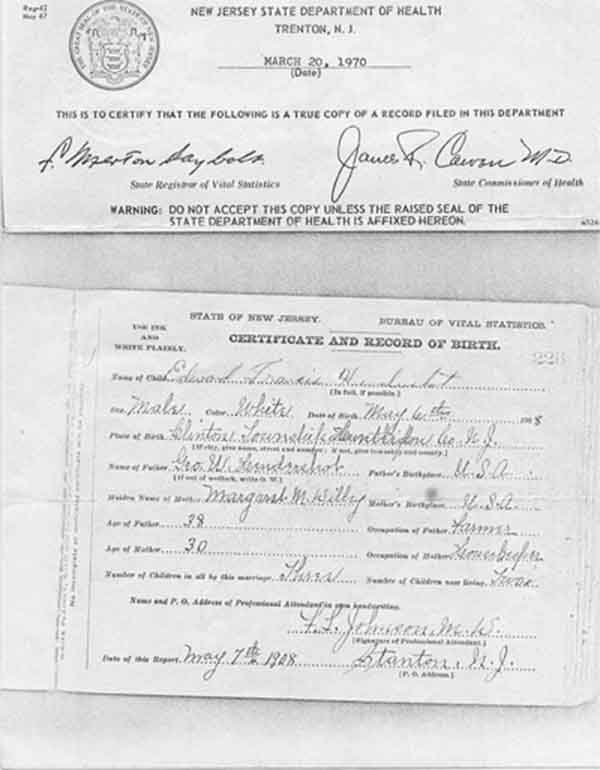 Reg-42
May 67
NEW JERSEY STATE DEPARTMENT OF HEALTH
TRENTON, N. J.
MARCH 20, 1970
(Date)
THIS IS TO CERTIFY THAT THE FOLLOWING IS A TRUE COPY OF A RECORD FILED IN THIS DEPARTMENT
James R. Cowan M.D.
State Registrar of Vital Statistics State Commissioner of Health
WARNING: DO NOT ACCEPT THIS COPY UNLESS THE RAISED SEAL OF THE
STATE DEPARTMENT OF HEALTH IS AFFIXED HEREON.
STATE OF NEW JERSEY. BUREAU OF VITAL STATISTICS.
USE INK
AND
WRITE PLAINLY.
CERTIFICATE AND RECORD OF BIRTH.
Name of Child, Edward Francis
[In full, if possible.]
Sex, Male Color, White Date of Birth, May 6th 1908
Place of Birth, Clinton Township Hunterdon Co. N. J.
[If city, give name, street and number; if not, give township and county.]
Name of Father, Geo. W. Hendershot Father's Birthplace, U.S.A.
[If out of wedlock, write O. W.]
Maiden Name of Mother, Margaret M. Mother's Birthplace, U.S.A.
Age of Father, 38 Occupation of Father, Farmer
Age of Mother, 30 Occupation of Mother, Housekeeper
Number of Children in all by this marriage, Three Number of Children now living, Two
Name and P. O. Address of Professional Attendant in own handwriting.
Johnson, M.D.
[Signature of Professional Attendant.]
Date of this Report, May 7th 1908 Stanton, N. J.
[P. O. Address.]